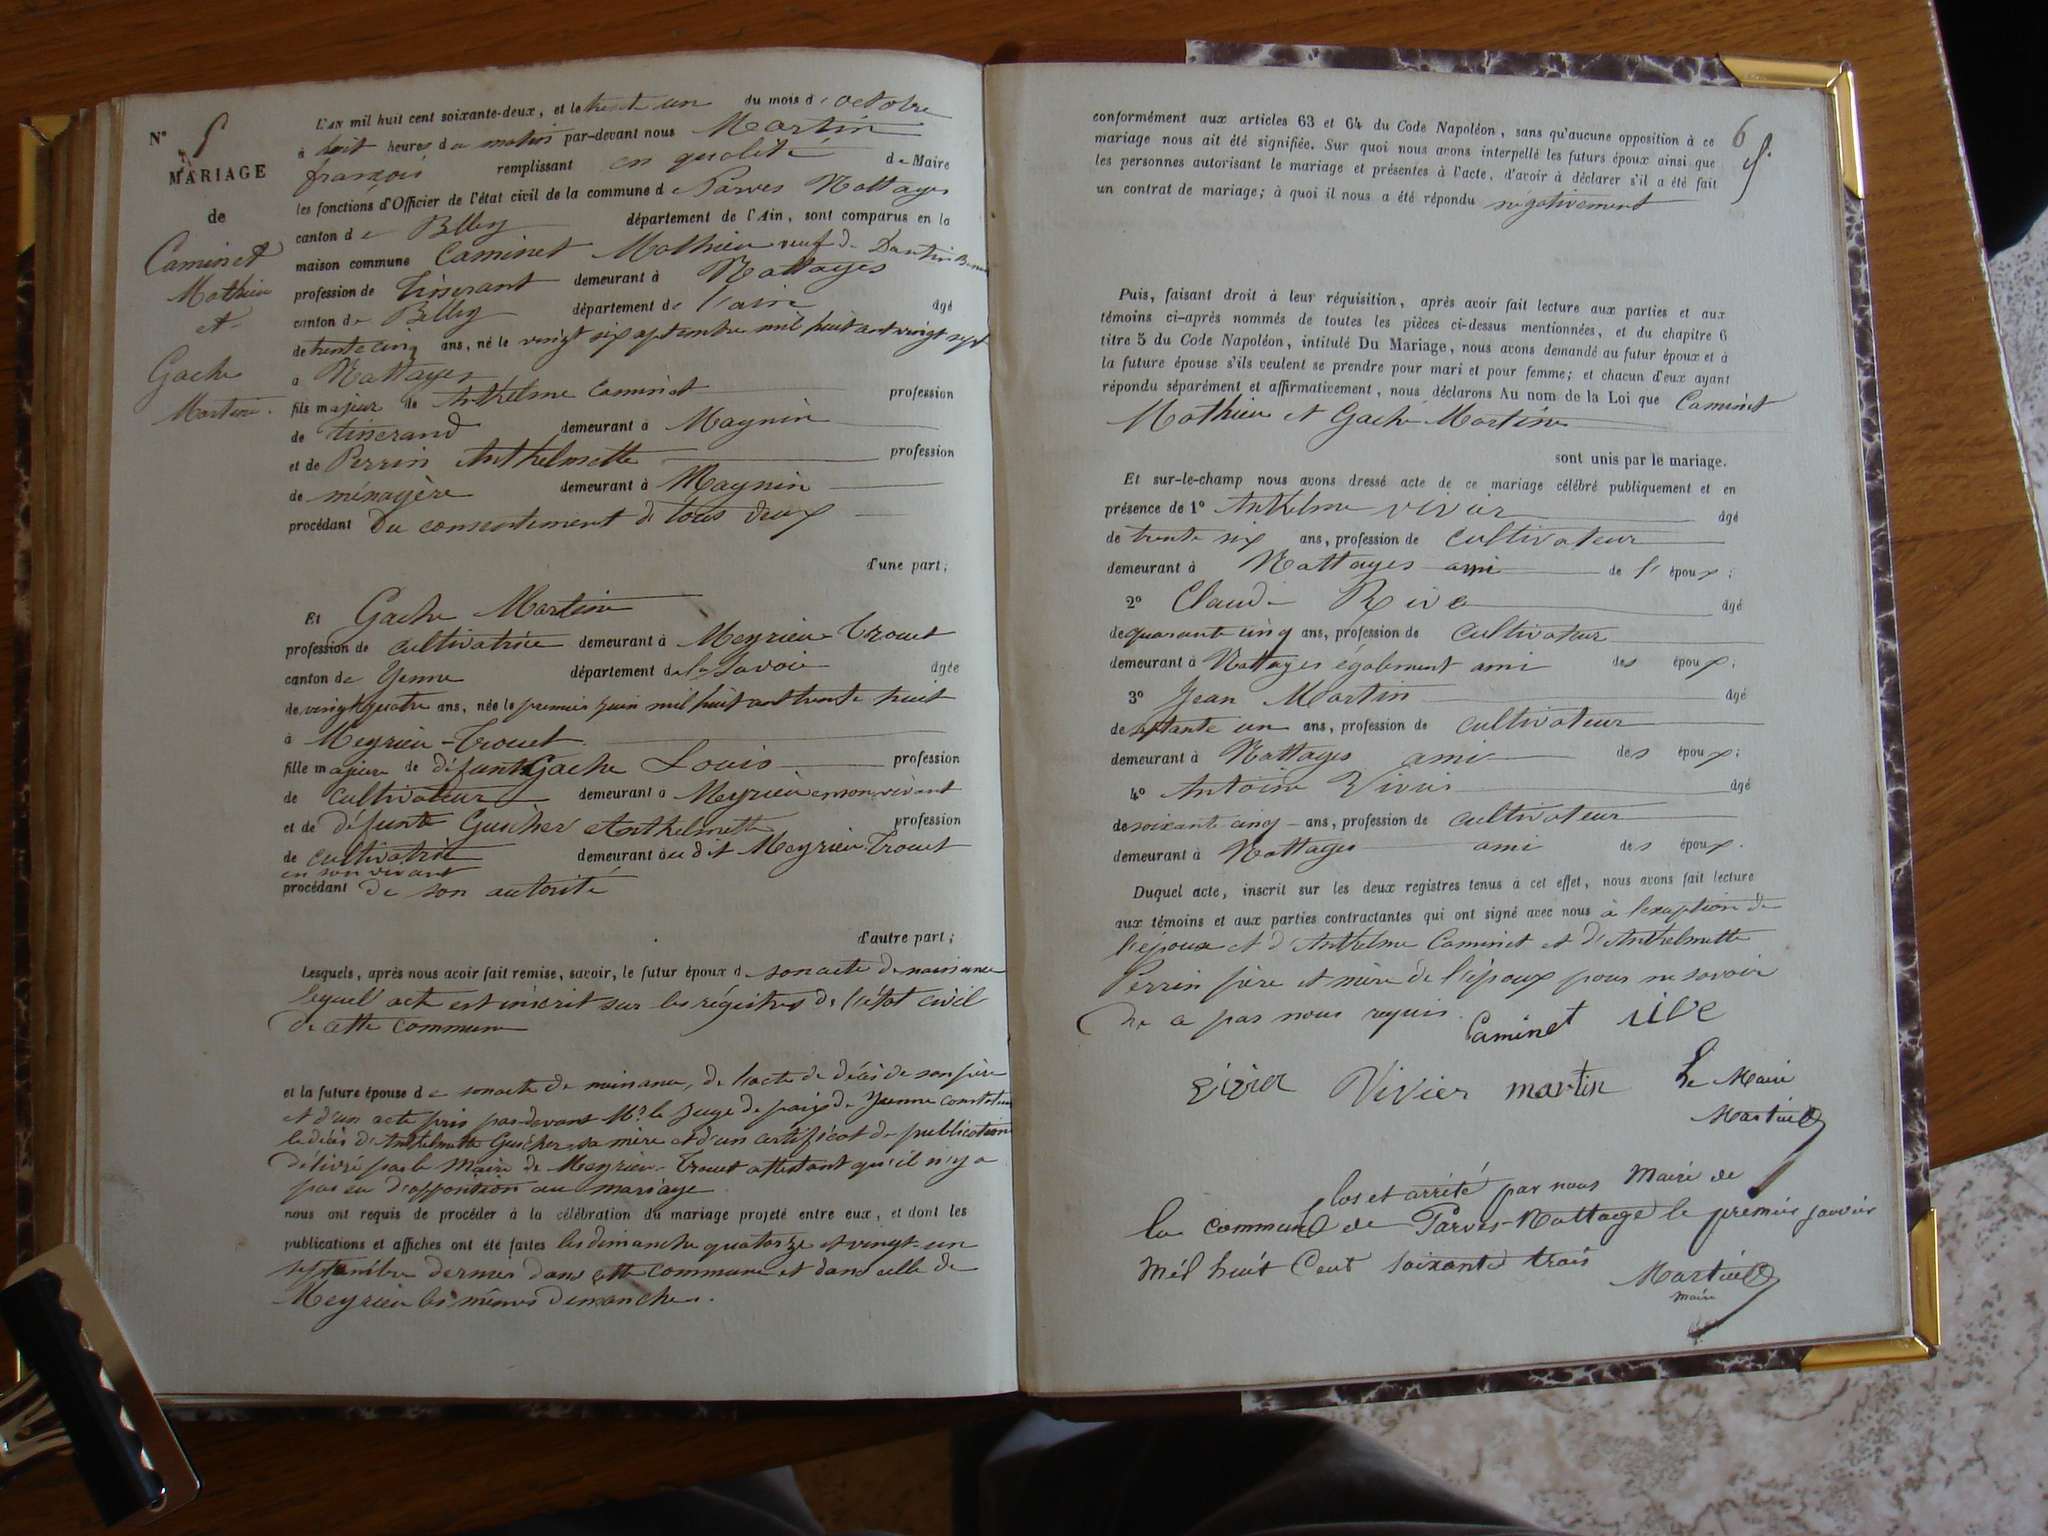 N° 5
MARIAGE
de
Caminet
Mathieu
et
Gache
Martine.
L'AN mil huit cent soixante-deux, et le trente un du mois d'octobre
à huit heures du matin par-devant nous Martin
françois remplissant en qualité de Maire
les fonctions d'Officier de l'état civil de la commune de Parves Nattages
canton de Belley département de l'Ain, sont comparus en la
maison commune Caminet Mathieu veuf de Dantin
profession de Tisserant demeurant à Nattages
canton de Belley département de l'ain âgé
de trente cinq ans, né le vingt six septembre mil huit cent vingt sept
à Nattages
fils majeur de Anthelme Caminet profession
de tisserand demeurant à Magnin
et de Perrin Anthelmette profession
de ménagère demeurant à Magnin
procédant Du consentement de tous deux
d'une part;
Et Gache Martine
profession de cultivatrice demeurant à Meyrieu-Trouet
canton de Yenne département de la Savoie âgée
de vingt quatre ans, née le premier juin mil huit cent trente huit
à Meyrieu-Trouet
fille majeure de défunt Gache Louis profession
de cultivateur demeurant à Meyrieu en son vivant
et de défunte Guicher Anthelmette profession
de cultivatrice demeurant au dit Meyrieu-Trouet
en son vivant
procédant de son autorité
d'autre part;
Lesquels, après nous avoir fait remise, savoir, le futur époux de son acte de naissance
lequel acte est inscrit sur les régistres de l'état civil
de cette commune
et la future épouse de son acte de naissance, de l'acte de décès de son père
et d'un acte pris par-devant Mr. le Juge de paix de Yenne
le décès de Anthelmette Guicher sa mère et d'un certificat de publication
délivré par le Maire de Meyrieu-Trouet attestant qu'il n'y a
pas eu d'opposition au mariage
nous ont requis de procéder à la célébration du mariage projeté entre eux, et dont les
publications et affiches ont été faites les dimanche quatorze et vingt-un
septembre dernier dans cette commune et dans celle de
Meyrieu les mêmes dimanches.
6
conformément aux articles 63 et 64 du Code Napoléon, sans qu'aucune opposition à ce
mariage nous ait été signifiée. Sur quoi nous avons interpellé les futurs époux ainsi que
les personnes autorisant le mariage et présentes à l'acte, d'avoir à déclarer s'il a été fait
un contrat de mariage; à quoi il nous a été répondu négativement
Puis, faisant droit à leur réquisition, après avoir fait lecture aux parties et aux
témoins ci-après nommés de toutes les pièces ci-dessus mentionnées, et du chapitre 6
titre 5 du Code Napoléon, intitulé Du Mariage, nous avons demandé au futur époux et à
la future épouse s'ils veulent se prendre pour mari et pour femme; et chacun d'eux ayant
répondu séparément et affirmativement, nous déclarons Au nom de la Loi que Caminet
Mathieu et Gache Martine
sont unis par le mariage.
Et sur-le-champ nous avons dressé acte de ce mariage célébré publiquement et en
présence de 1° Anthelme vivier âgé
de trente six ans, profession de cultivateur
demeurant à Nattages ami de l'époux;
2° Claude Rive âgé
de quarante cinq ans, profession de cultivateur
demeurant à Nattages également ami des époux;
3° Jean Martin âgé
de septante un ans, profession de cultivateur
demeurant à Nattages ami des époux;
4° Antoine Vivier âgé
de soixante cinq ans, profession de cultivateur
demeurant à Nattages ami des époux.
Duquel acte, inscrit sur les deux registres tenus à cet effet, nous avons fait lecture
aux témoins et aux parties contractantes qui ont signé avec nous à l'exeption de
l'épouse et d'Anthelme Caminet et d'Anthelmette
Perrin père et mère de l'époux pour ne savoir
de ce par nous requis.
Caminet rive
vivier Vivier martin Le Maire
Martin
Clos et arrêté par nous Maire de
la commune de Parves-Nattage le premier janvier
mil huit Cent soixante trois
Martin
maire